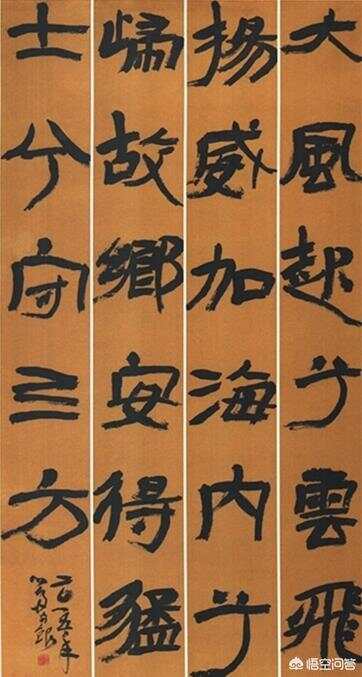 大風起兮雲飛
揚威加海内兮
歸故鄉安得猛
士兮守三方
悟空问答